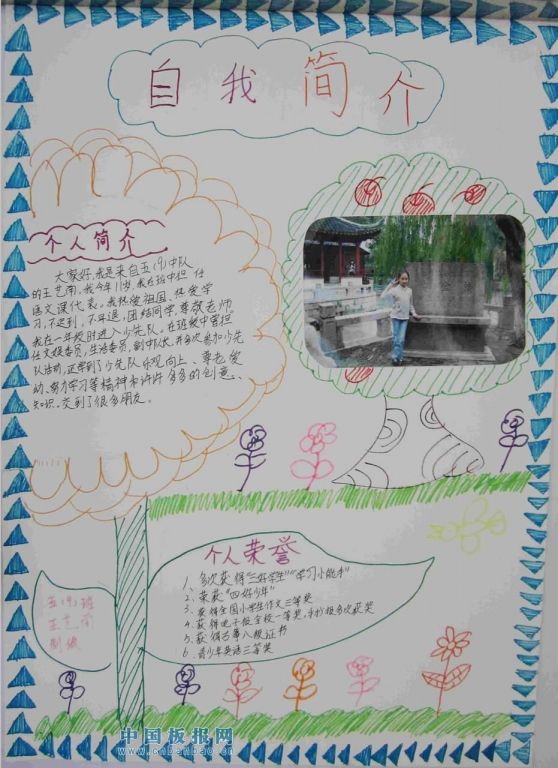 自我简介
个人简介
大家好,我是来自五(9)中队
的王艺南,我今年11岁,我在班中担任
语文课代表。我热爱祖国、热爱学
习,不迟到,不早退,团结同学,尊敬老师。
我在一年级时进入少先队。在班级中曾担
任文娱委员,生活委员,副中队长,并多次参加少先
队活动,还学到了少先队乐观向上、尊老爱
幼、努力学习等精神和许许多多的创意、
知识。交到了很多朋友。
个人荣誉
1、多次获得“三好学生”“学习小能手”
2、荣获“四好少年”
3、获得全国小学生作文三等奖
4、获得电子报全校一等奖,手抄报多次获奖
5、获得古筝八级证书
6、青少年英语三等奖
五(9)班
王艺南
制做
中国板报网
www.cnbanbao.cn